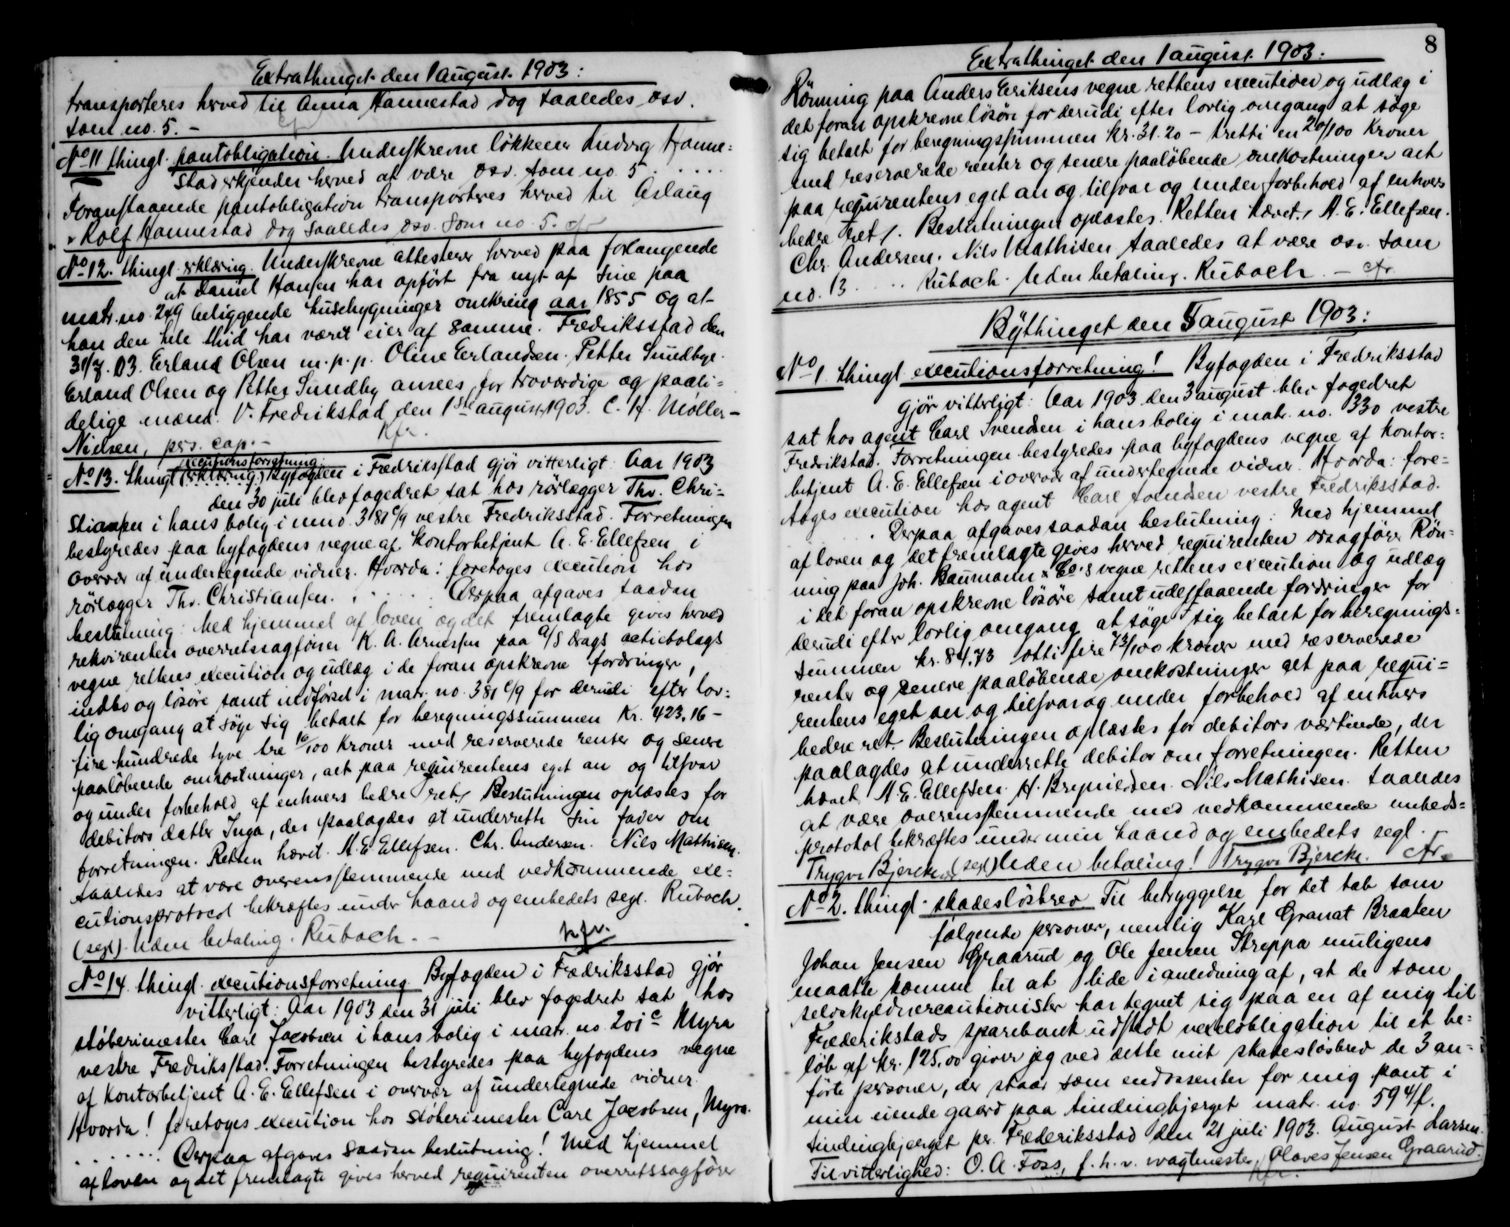 Extrathinget den 1 august 1903:
transporteres herved til Anna Hannestad dog saaledes osv.
som no. 5. –
No 11 thingl. pantobligation. Underskrevne løkkeeier Ludvig Hanne=
stad erkjender herved at være osv. som no. 5 . . . . . .
Foranstaaende pantobligation transporteres herved til Aslaug
Rolf Hannestad dog saaledes osv. som no. 5.
No 12. thingl. erklæring. Underskrevne attesterer herved paa forlangende
at Daniel Hansen har opført fra nyt af sine paa
matr. no. beliggende husebygninger omkring aar 1855 og at
han den hele thid har været eier af samme. Fredriksstad den
31/7. 03. Erland Olsen m. p. p. Oline Erlandsen. Petter Sundbye.
Erland Olsen og Petter Sundby ansees for troværdige og paali=
delige mænd. V. Fredrikstad den 1ste august 1903. C. H. Møller –
Nielsen, pers. cap. –
No 13. thingl. (erklæring) executionsforretning. Byfogden i Fredriksstad gjør vitterligt: Aar 1903
den 30 juli blev fogedret sat hos rørlægger Thv. Chri=
stiansen i hans bolig i mno. 381 c/9 vestre Fredriksstad. Forretningen
bestyredes paa byfogdens vegne af kontorbetjent A. E. Ellefsen i
overvær af undertegnede vidner. Hvorda: foretoges execution hos
rørlægger Thv. Christiansen. . . . . . Derpaa afgaves saadan
beslutning: Med hjemmel af loven og det fremlagte gives herved
rekvirenten overretssagfører K. A. Arnesen paa A/S Drags actiebolags
vegne rettens execution og udlæg i de foran opskrevne fordringer,
indbo og løsøre samt indførsel i matr. no. 381 c/9 for derudi efter lov=
lig omgang at søge sig betalt for beregningssummen kr. 423,16 –
fire hundrede tyve tre 16/100 kroner med reserverede renter og senere
paaløbende omkostninger, alt paa requirentens eget an og tilsvar
og under forbehold af enhvers bedre ret. Beslutningen oplæstes for
debitors datter Inga, der paalagdes at underrette sin fader om
forretningen. Retten hævet. A. E. Ellefsen. Chr. Andersen. Nils Mathisen.
Saaledes at være overensstemmende med vedkommende exe=
cutionsprotocol bekræftes under haand og embedets segl. Rubach.
(segl). Uden betaling. Rubach. –
No 14. thingl. executionsforretning. Byfogden i Fredriksstad gjør
vitterligt: Aar 1903 den 31 juli blev fogedret sat hos
støberimester Carl Jacobsen i hans bolig i matr. no. 201 c Myra
vestre Fredriksstad. Forretningen bestyredes paa byfogdens vegne
af kontorbetjent A. E. Ellefsen i overvær af undertegnede vidner.
Hvorda! foretoges execution hos støberimester Carl Jacobsen, Myra.
. . . . . . . Derpaa afgaves saadan beslutning! Med hjemmel
af loven og det fremlagte gives herved requirenten overretssagfører
8
Extrathinget den 1 august 1903:
Rönning paa Anders Eriksens vegne rettens execution og udlæg i
det foran opskrevne løsøre for derudi efter lovlig omgang at søge
sig betalt for beregningssummen kr. 31.20 – tretti en 20/100 kroner
med reserverede renter og senere paaløbende omkostninger alt
paa requirentens eget an og tilsvar og under forbehold af enhvers
bedre ret. Beslutningen oplæstes. Retten hævet. A. E. Ellefsen.
Chr. Andersen. Nils Mathisen. Saaledes at være osv. som
no. 13 . . . . Rubach. Uden betaling. Rubach. –
Bythinget den 5 august 1903:
No 1. thingl. executionsforretning! Byfogden i Fredriksstad
gjør vitterligt: Aar 1903 den 3 august blev fogedret
sat hos agent Carl Svendsen i hans bolig i matr. no. 330 vestre
Fredrikstad. Forretningen bestyredes paa byfogdens vegne af kontor=
betjent A. E. Ellefsen i overvær af undertegnede vidner. Hvorda: fore=
toges execution hos agent Carl Svendsen vestre Fredriksstad.
. . . . Derpaa afgaves saadan beslutning: Med hjemmel
af loven og det fremlagte gives herved requirenten orsagfører Røn=
ning paa Joh. Baumann & Co.s vegne rettens execution og udlæg
i det foran opskrevne løsøre samt udestaaende fordringer for
derudi efter lovlig omgang at søge sig betalt for beregnings=
summen kr. 84.73 otti fire 73/100 kroner med reserverede
renter og senere paaløbende omkostninger alt paa requi=
rentens eget an og tilsvar og under forbehold af enhvers
bedre ret. Beslutningen oplæstes for debitors værtinde, der
paalagdes at underrette debitor om forretningen. Retten
hævet. A. E. Ellefsen. H. Brynildsen. Nils Mathisen. Saaledes
at være overensstemmende med vedkommende embeds=
protokol bekræftes under min haand og embedets segl.
Trygve Bjercke (segl) Uden betaling! Trygve Bjercke.
No 2. thingl. skadesløsbrev. Til betryggelse for det tab som
følgende personer, nemlig Karl Granat Braaten
Johan Jensen Graarud og Ole Jensen Skreppa muligens
maatte komme til at lide i anledning af, at de som
selvskyldnercautionister har tegnet sig paa en af mig til
Frederikstads sparebank udstedt vexelobligation til et be=
løb af kr. 125,00 giver jeg ved dette mit skadesløsbrev de 3 an=
førte personer, der staar som endossenter for mig pant i
min eiende gaard paa Sindingbjerget matr. no. 594/f.
Sindingbjerget pr. Frederiksstad den 21 juli 1903. August Larsen.
Til vitterlighed: O. A. Foss, f. h. v. vagtmester, Olaves Jensen Graarud.